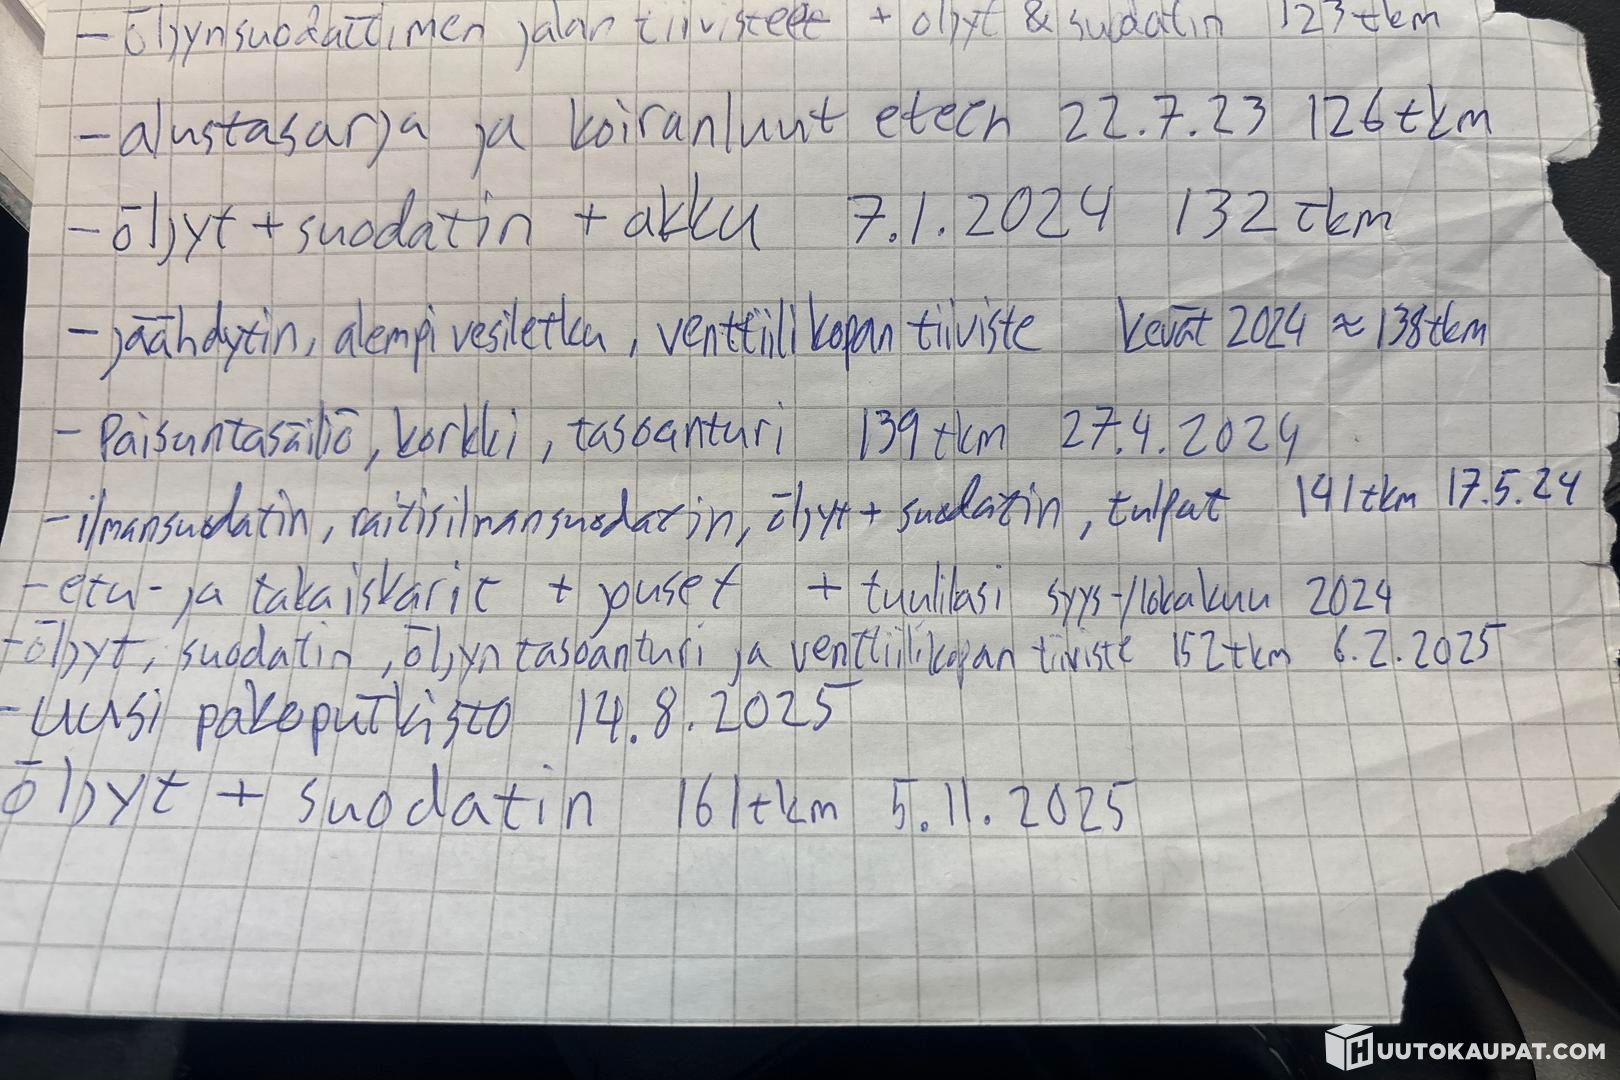 - öljynsuodattimen jalan tiivisteet + öljyt & suodatin 123tkm
- alustasarja ja koiranluut eteen 22.7.23 126tkm
- öljyt + suodatin + akku 7.1.2024 132tkm
- jäähdytin, alempi vesiletku, venttiilikopan tiiviste kevät 2024 ≈138tkm
- Paisuntasäiliö, korkki, tasoanturi 139tkm 27.4.2024
- ilmansuodatin, raitisilmansuodatin, öljyt + suodatin, tulpat 141tkm 17.5.24
- etu- ja takaiskarit + jouset + tuulilasi syys-/lokakuu 2024
- öljyt, suodatin, öljyn tasoanturi ja venttiilikopan tiiviste 152tkm 6.2.2025
- uusi pakoputkisto 14.8.2025
öljyt + suodatin 161tkm 5.11.2025
HUUTOKAUPAT.COM